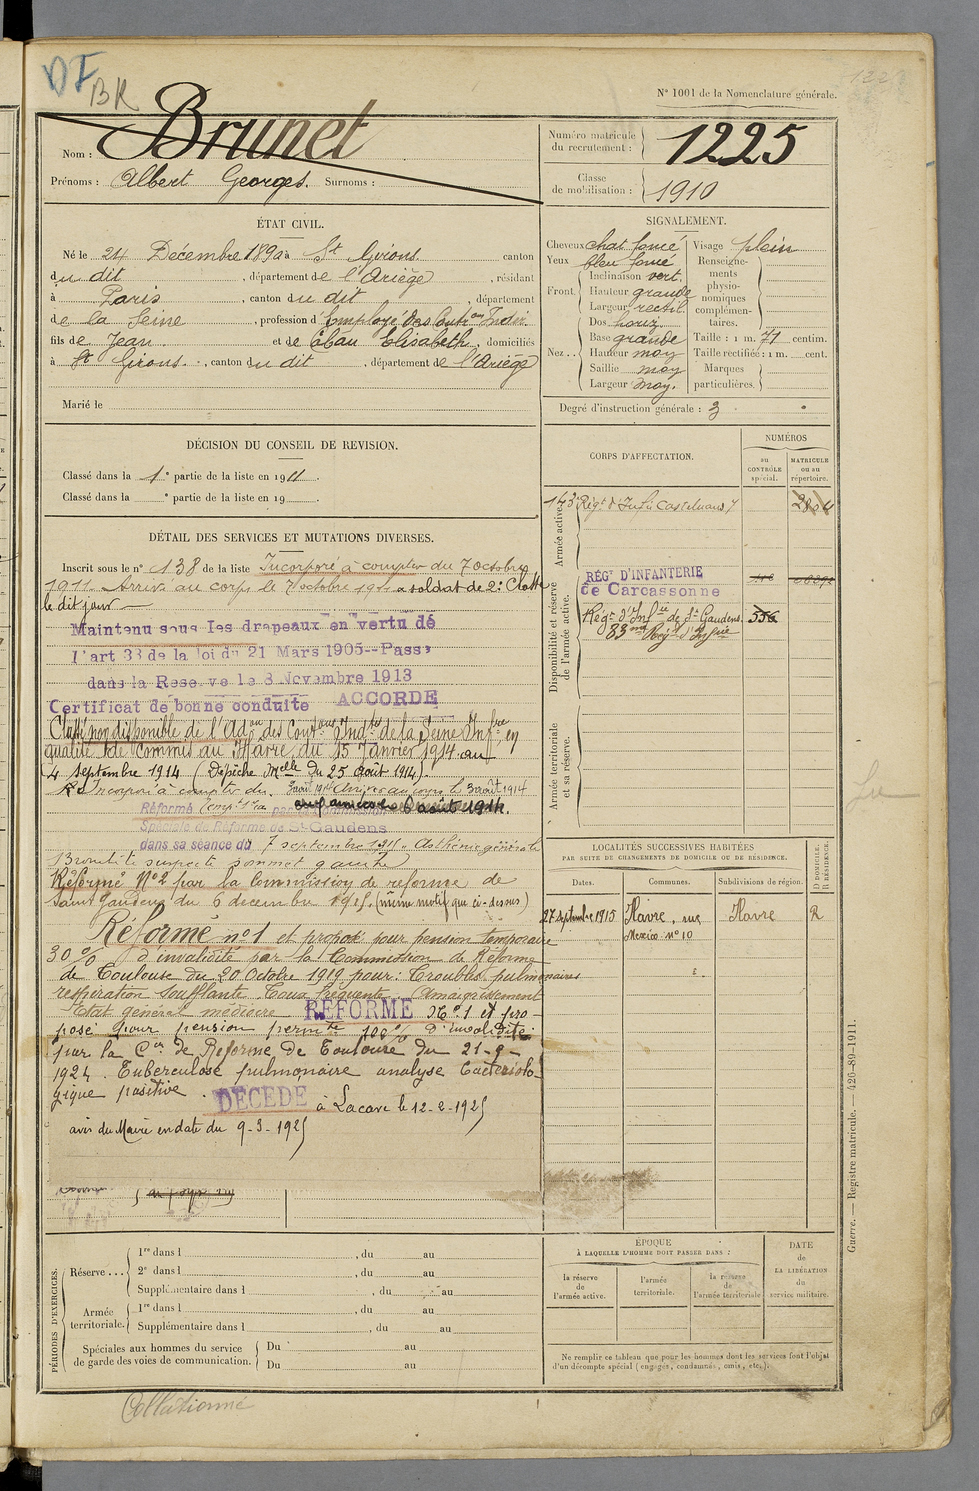 DF
BR
N° 1001 de la Nomenclature générale.
Nom : Brunet
Prénoms : Albert Georges. Surnoms :
Numéro matricule du recrutement : 1225
Classe de mobilisation : 1910
ÉTAT CIVIL.
Né le 24 Décembre 1890 à St Girons canton
du dit , département de l'Ariège , résidant
à Paris , canton du dit , département
de la Seine , profession d'Employé des Contr ons Indir.
fils de Jean et de Elizabeth , domiciliés
à St Girons. , canton du dit , département de l'Ariège
Marié le
SIGNALEMENT.
Cheveux chat foncé Visage plein
Yeux bleu foncé
Front Inclinaison vert.
Hauteur grande
Largeur rectil.
Nez Dos
Base grande
Hauteur moy
Saillie moy
Largeur moy.
Renseignements physionomiques complémentaires.
Taille : 1 m. 71 centim.
Taille rectifiée : 1 m. cent.
Marques particulières.
Degré d'instruction générale : 3
DÉCISION DU CONSEIL DE REVISION.
Classé dans la 1e partie de la liste en 1911.
Classé dans la e partie de la liste en 19
CORPS D'AFFECTATION.
NUMÉROS
au CONTRÔLE spécial.
MATRICULE ou au répertoire.
Armée active.
143e Régt d'Infie Castelnaudy
Disponibilité et réserve de l'armée active.
RÉGT D'INFANTERIE
de Carcassonne
Régt d'Infie de St Gaudens
83me Régt d'Infie
Armée territoriale et sa réserve.
DÉTAIL DES SERVICES ET MUTATIONS DIVERSES.
Inscrit sous le n° 138 de la liste Incorporé à compter du 7 octobre
1911. Arrivé au corps le 7 octobre 1911 soldat de 2e Classe
le dit jour
Maintenu sous les drapeaux en vertu de
l'art 33 de la loi du 21 Mars 1905--Passé
dans la Reserve le 8 Novembre 1913
Certificat de bonne conduite ACCORDÉ
Classé non disponible de l'Adon des Contons Indtes de la Seine Infre en
qualité de commis au Havre, du 15 Janvier 1914 au
4 septembre 1914 (Dépêche Melle du 25 août 1914).
Ré Incorporé à compter du 3 août 1914 Arrivé au corps le 3 août 1914
Réformé Tempre par
Spéciale de Réforme de St Gaudens
dans sa séance du 7 septembre 1914. Asthénie générale
Bronchite suspecte sommet gauche
Réformé N°2 par la Commission de reforme de
Saint Gaudens du 6 decembre 1915. (même motif que ci-dessus)
Réformé n°1 et proposé pour pension temporaire
30 % d'invalidité par la Commission de Réforme
de Toulouse du 20 Octobre 1919 pour : Troubles pulmonaires
respiration soufflante. Toux fréquente. Amaigrissement
Etat général médiocre RÉFORMÉ N° 1 et pro-
posé pour pension permte 100 % d'invalidité
par la Con de Reforme de Toulouse du 21-9-
1924. Tuberculose pulmonaire analyse bacteriolo-
gique positive.
DÉCÉDÉ à Lacave le 12-2-1925
avis du Maire en date du 9-3-1925
LOCALITÉS SUCCESSIVES HABITÉES
PAR SUITE DE CHANGEMENTS DE DOMICILE OU DE RÉSIDENCE.
Dates. Communes. Subdivisions de région. D DOMICILE. R RÉSIDENCE.
27 septembre 1915 Havre, rue Mexico N° 10 Havre R
PÉRIODES D'EXERCICES.
Réserve... 1re dans l , du au
2e dans l , du au
Supplémentaire dans l , du au
Armée territoriale. 1re dans l , du au
Supplémentaire dans l , du au
Spéciales aux hommes du service de garde des voies de communication. Du au
Du au
ÉPOQUE
À LAQUELLE L'HOMME DOIT PASSER DANS :
la réserve de l'armée active.
l'armée territoriale.
la réserve de l'armée territoriale
DATE de LA LIBÉRATION du service militaire.
Ne remplir ce tableau que pour les hommes dont les services font l'objet
d'un décompte spécial (engagés, condamnés, omis, etc.).
Guerre. — Registre matricule. — 426-89-1911.
Collationné